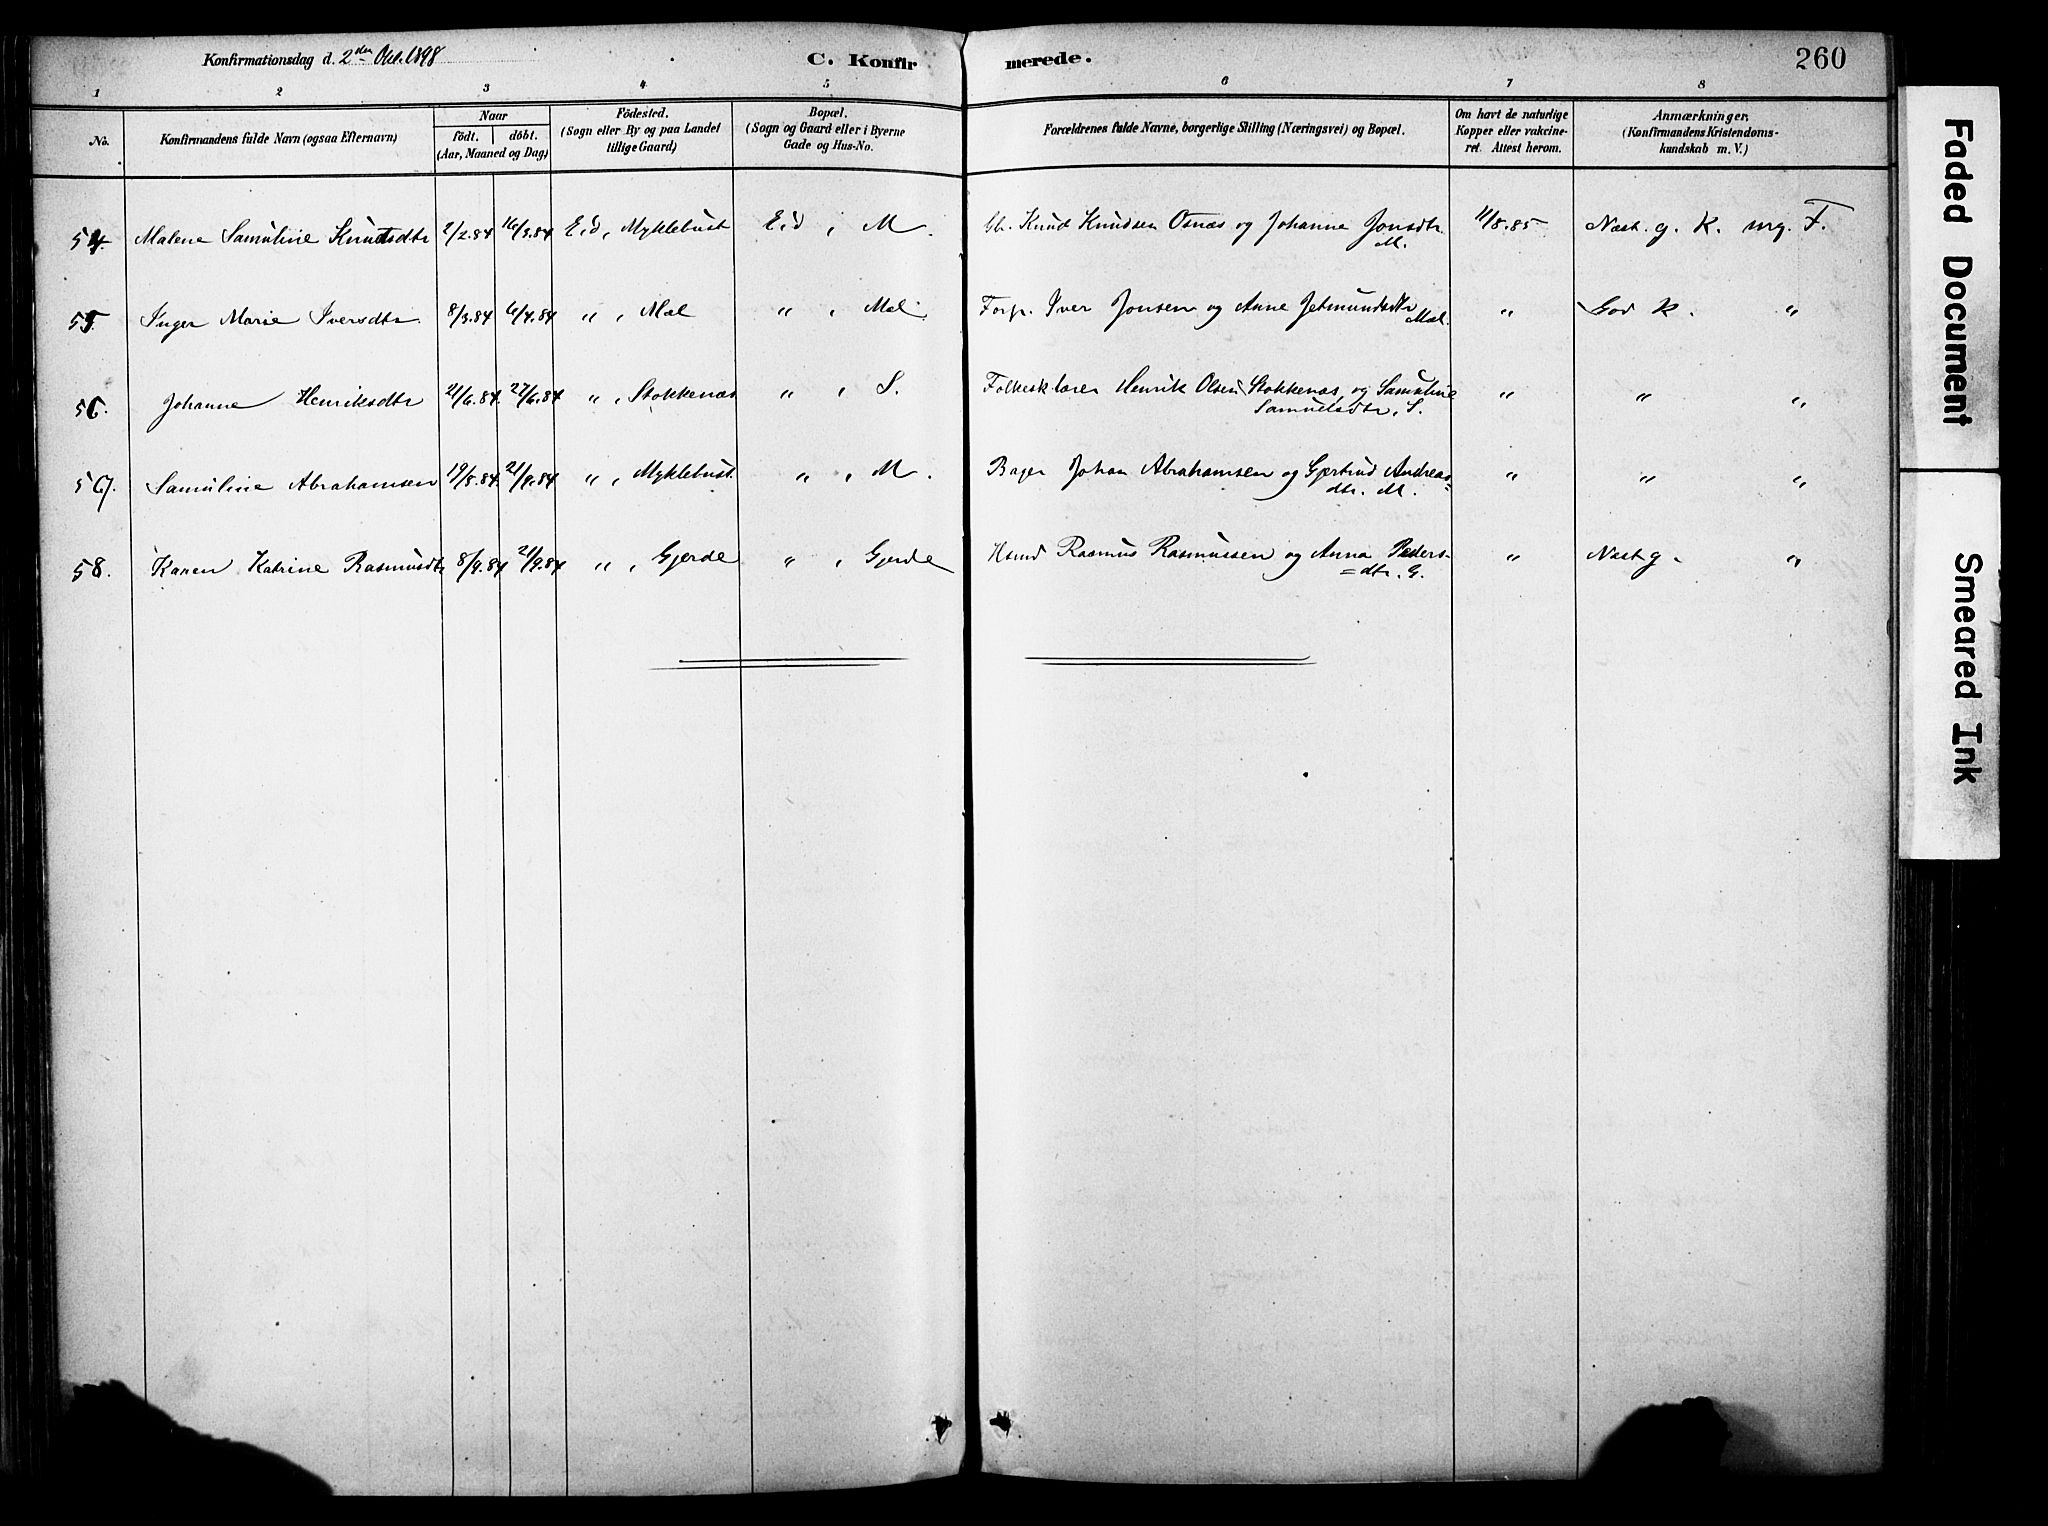 Konfirmationsdag d. 2den Okt. 1898
C. Konfirmerede.
260
1 2 3 4 5 6 7 8
No.
Konfirmandens fulde Navn (ogsaa Efternavn)
Naar
födt. döbt.
(Aar, Maaned og Dag)
Födested.
(Sogn eller By og paa Landet
tillige Gaard)
Bopæl.
(Sogn og Gaard eller i Byerne
Gade og Hus-No.
Forældrenes fulde Navne, borgerlige Stilling (Næringsvei) og Bopæl.
Om havt de naturlige
Kopper eller vakcine-
ret. Attest herom.
Anmærkninger.
(Konfirmandens Kristendoms-
kundskab m. V.)
54. Malene Samuline Knudsdtr 2/2.84 16/3.84 Eid, Myklebust Eid, M. Knud Knudsen Osnæs og Johanne Jonsdtr. 11/8.85 Næst. g. K. mg. F.
M.
55. Inger Marie Iversdtr. 8/3.84 6/4.84 " , Mæl " , Mæl Forp. Iver Jonsen og Anne Jetmundsdtr " God K. "
Mæl.
56. Johanne Henriksdtr 21/6.84. 27/6.84 " , Stokkenæs " , S. Folkesk.lærer Henrik Olsen Stokkenæs, og Samuline " " "
Samuelsdtr, S.
57. Samuline Abrahamsen 19/8.84. 21/9.84 " , Myklebust. " , M. Bager Johan Abrahamsen og Gjertrud Andreas= " " "
dtr. M.
58. Karen Katrine Rasmusdtr 8/9.84 21/9.84 " , Gjerde " , Gjerde Hsmd Rasmus Rasmussen og Anna Peders- " Næst g. "
=dtr. G.
Faded Document
Smeared Ink